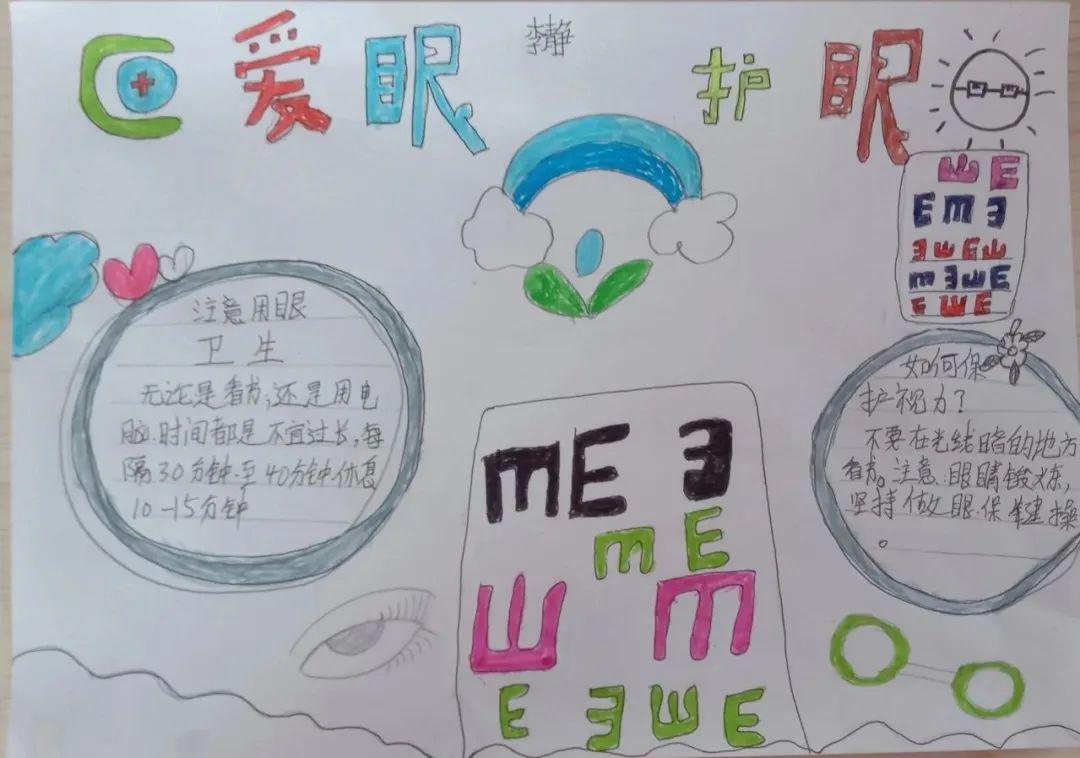 爱眼 护眼
李静
注意用眼
卫生
无论是看书,还是用电
脑.时间都是不宜过长,每
隔30分钟.至40分钟.休息
10-15分钟
如何保
护视力?
不要在光线暗的地方
看书。注意.眼睛锻炼,
坚持做眼.保健操
。